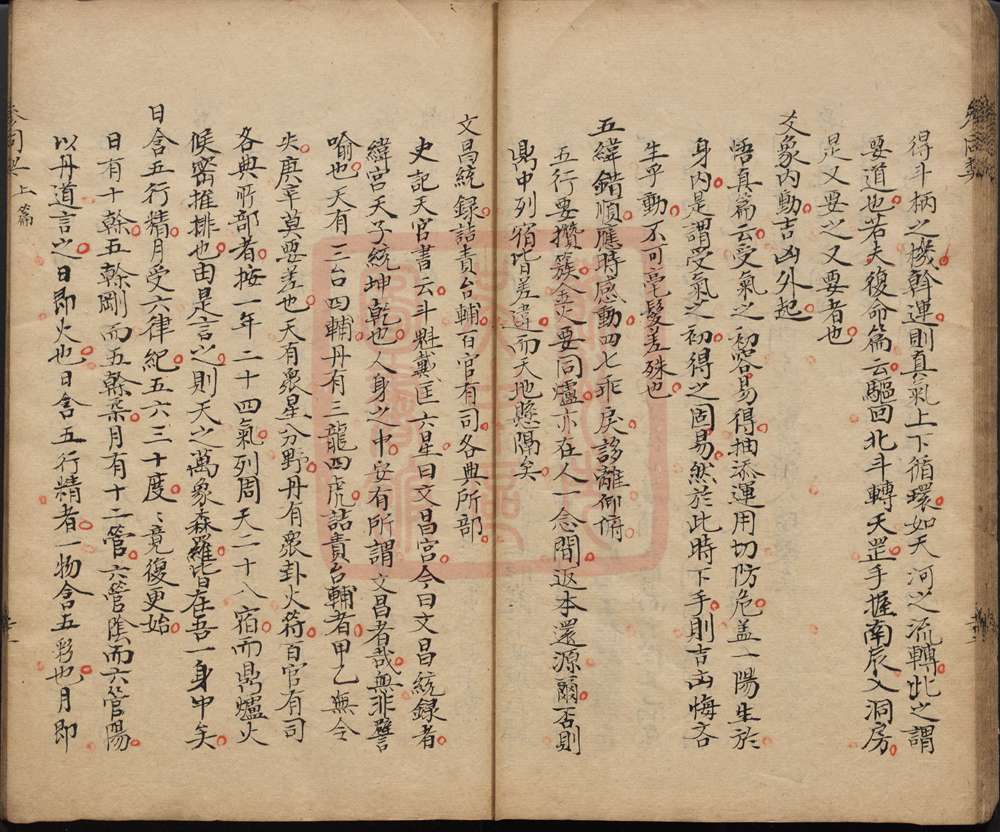 得斗柄之機斡運則真氣上下循環如天河之流轉此之謂
要道也若夫復命篇云驅回北斗轉天罡手握南辰入洞房
是又要之又要者也
爻象內動吉凶外起
悟真篇云受氣之初容易得抽添運用切防危盖一陽生於
身內是謂受氣之初得之固易然於此時下手則吉凶悔吝
生乎動不可毫髮差殊也
五緯錯順應時感動四七乖戾誃離仰俯
五行要攢簇金火要同爐亦在人一念間返本還源爾否則
鼎中列宿皆差違而天地懸隔矣
文昌統録詰責台輔百官有司各典所部
史記天官書云斗魁戴匡六星曰文昌宮今曰文昌統録者
緯宮天子統坤乾也人身之中安有所謂文昌者哉無非譬
喻也天有三台四輔丹有三龍四虎詰責台輔者甲乙無令
失庚辛莫要差也天有衆星分野丹有衆卦火符百官有司
各典所部者按一年二十四氣列周天二十八宿而鼎爐火
候密推排也由是言之則天之萬象森羅皆在吾一身中矣
日含五行精月受六律紀五六三十度〻竟復更始
日有十榦五榦剛而五榦柔月有十二管六管陰而六管陽
以丹道言之日即火也日含五行精者一物含五彩也月即
參同契上篇